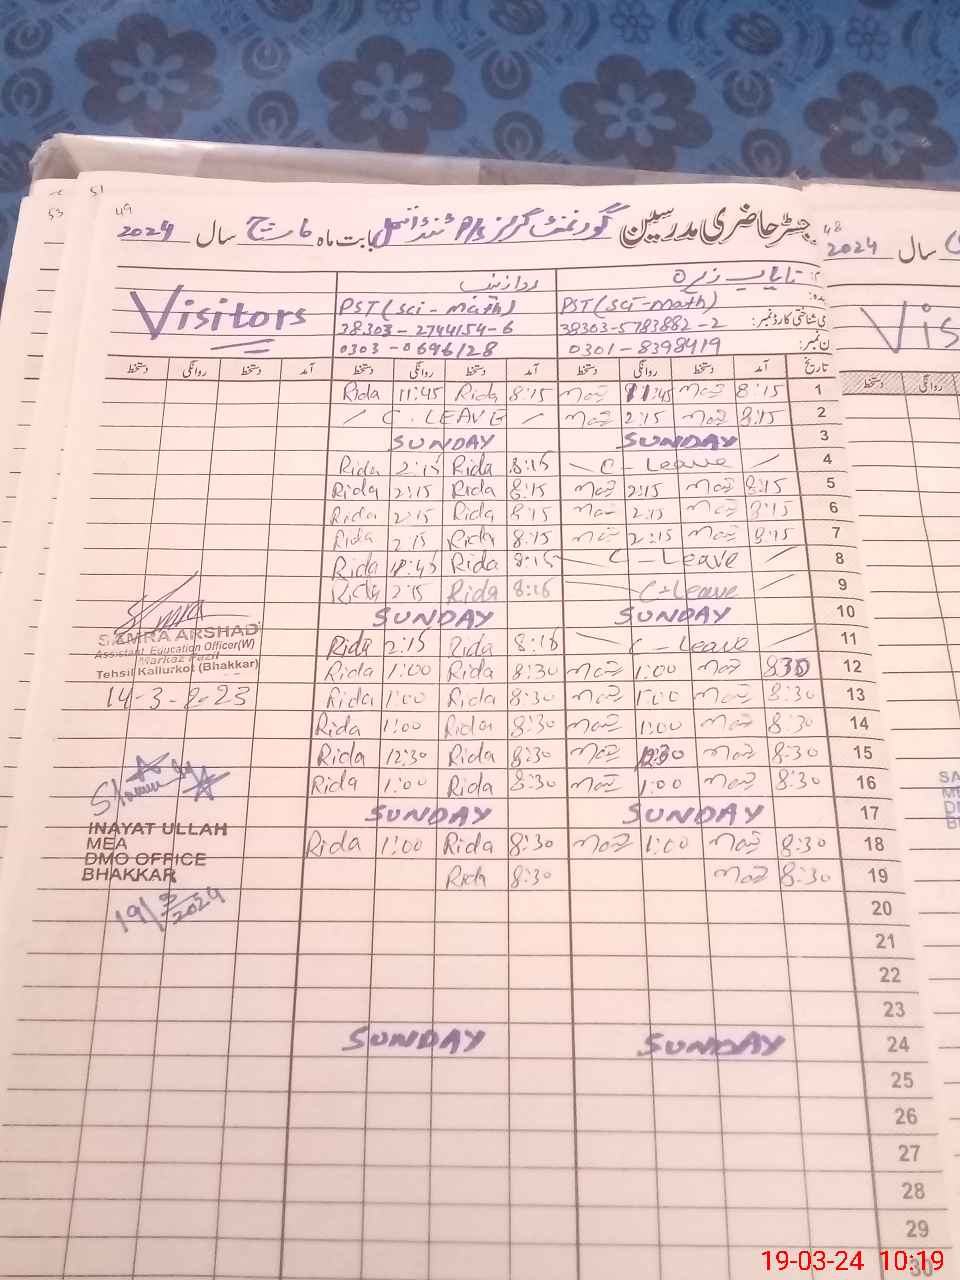 51
53
49
2024 سال مارچ بابت ماہ گورنمنٹ گرلز P/S رجسٹر حاضری مدرسین
48
2024 سال
Visitors
Vis
PST (Sci - Math) PST (Sci - Math)
38303-2744154-6 38303-5783882-2 شناختی کارڈ نمبر:
0303-0696128 0301-8398419
دستخط روانگی دستخط آمد دستخط روانگی دستخط آمد دستخط روانگی دستخط آمد تاریخ
دستخط روانگی
Rida 11:45 Rida 8:15 11:45 8:15 1
C. LEAVE 2:15 8:15 2
SUNDAY SUNDAY 3
Rida 2:15 Rida 8:15 C-Leave 4
Rida 2:15 Rida 8:15 2:15 8:15 5
Rida 2:15 Rida 8:15 2:15 8:15 6
Rida 2:15 Rida 8:15 2:15 8:15 7
Rida Rida 8:15 C-Leave 8
Rida 2:15 Rida 8:15 C-Leave 9
SUNDAY SUNDAY 10
Rida 2:15 Rida 8:15 C-Leave 11
Rida 1:00 Rida 8:30 1:00 8:30 12
Rida 1:00 Rida 8:30 1:00 8:30 13
Rida 1:00 Rida 8:30 1:00 8:30 14
Rida 12:30 Rida 8:30 12:30 8:30 15
Rida 1:00 Rida 8:30 1:00 8:30 16
SUNDAY SUNDAY 17
Rida 1:00 Rida 8:30 1:00 8:30 18
Rida 8:30 8:30 19
20
21
22
23
SUNDAY SUNDAY 24
25
26
27
28
29
30
SAMRA ARSHAD
Assistant Education Officer(W)
Markaz Fazil
Tehsil Kallurkot (Bhakkar)
14-3-2023
INAYAT ULLAH
MEA
DMO OFFICE
BHAKKAR
19/3/2024
19-03-24 10:19